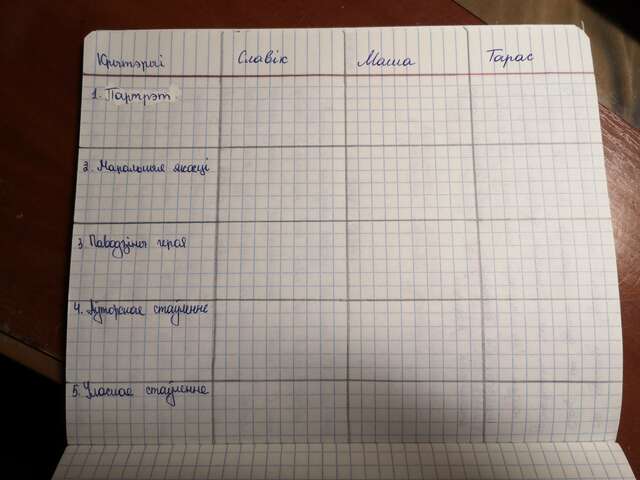 Крытэрыі Славік Маша Тарас
1. Партрэт
2. Маральныя якасці
3. Паводзіны героя
4. Аўтарскае стаўленне
5. Уласнае стаўленне